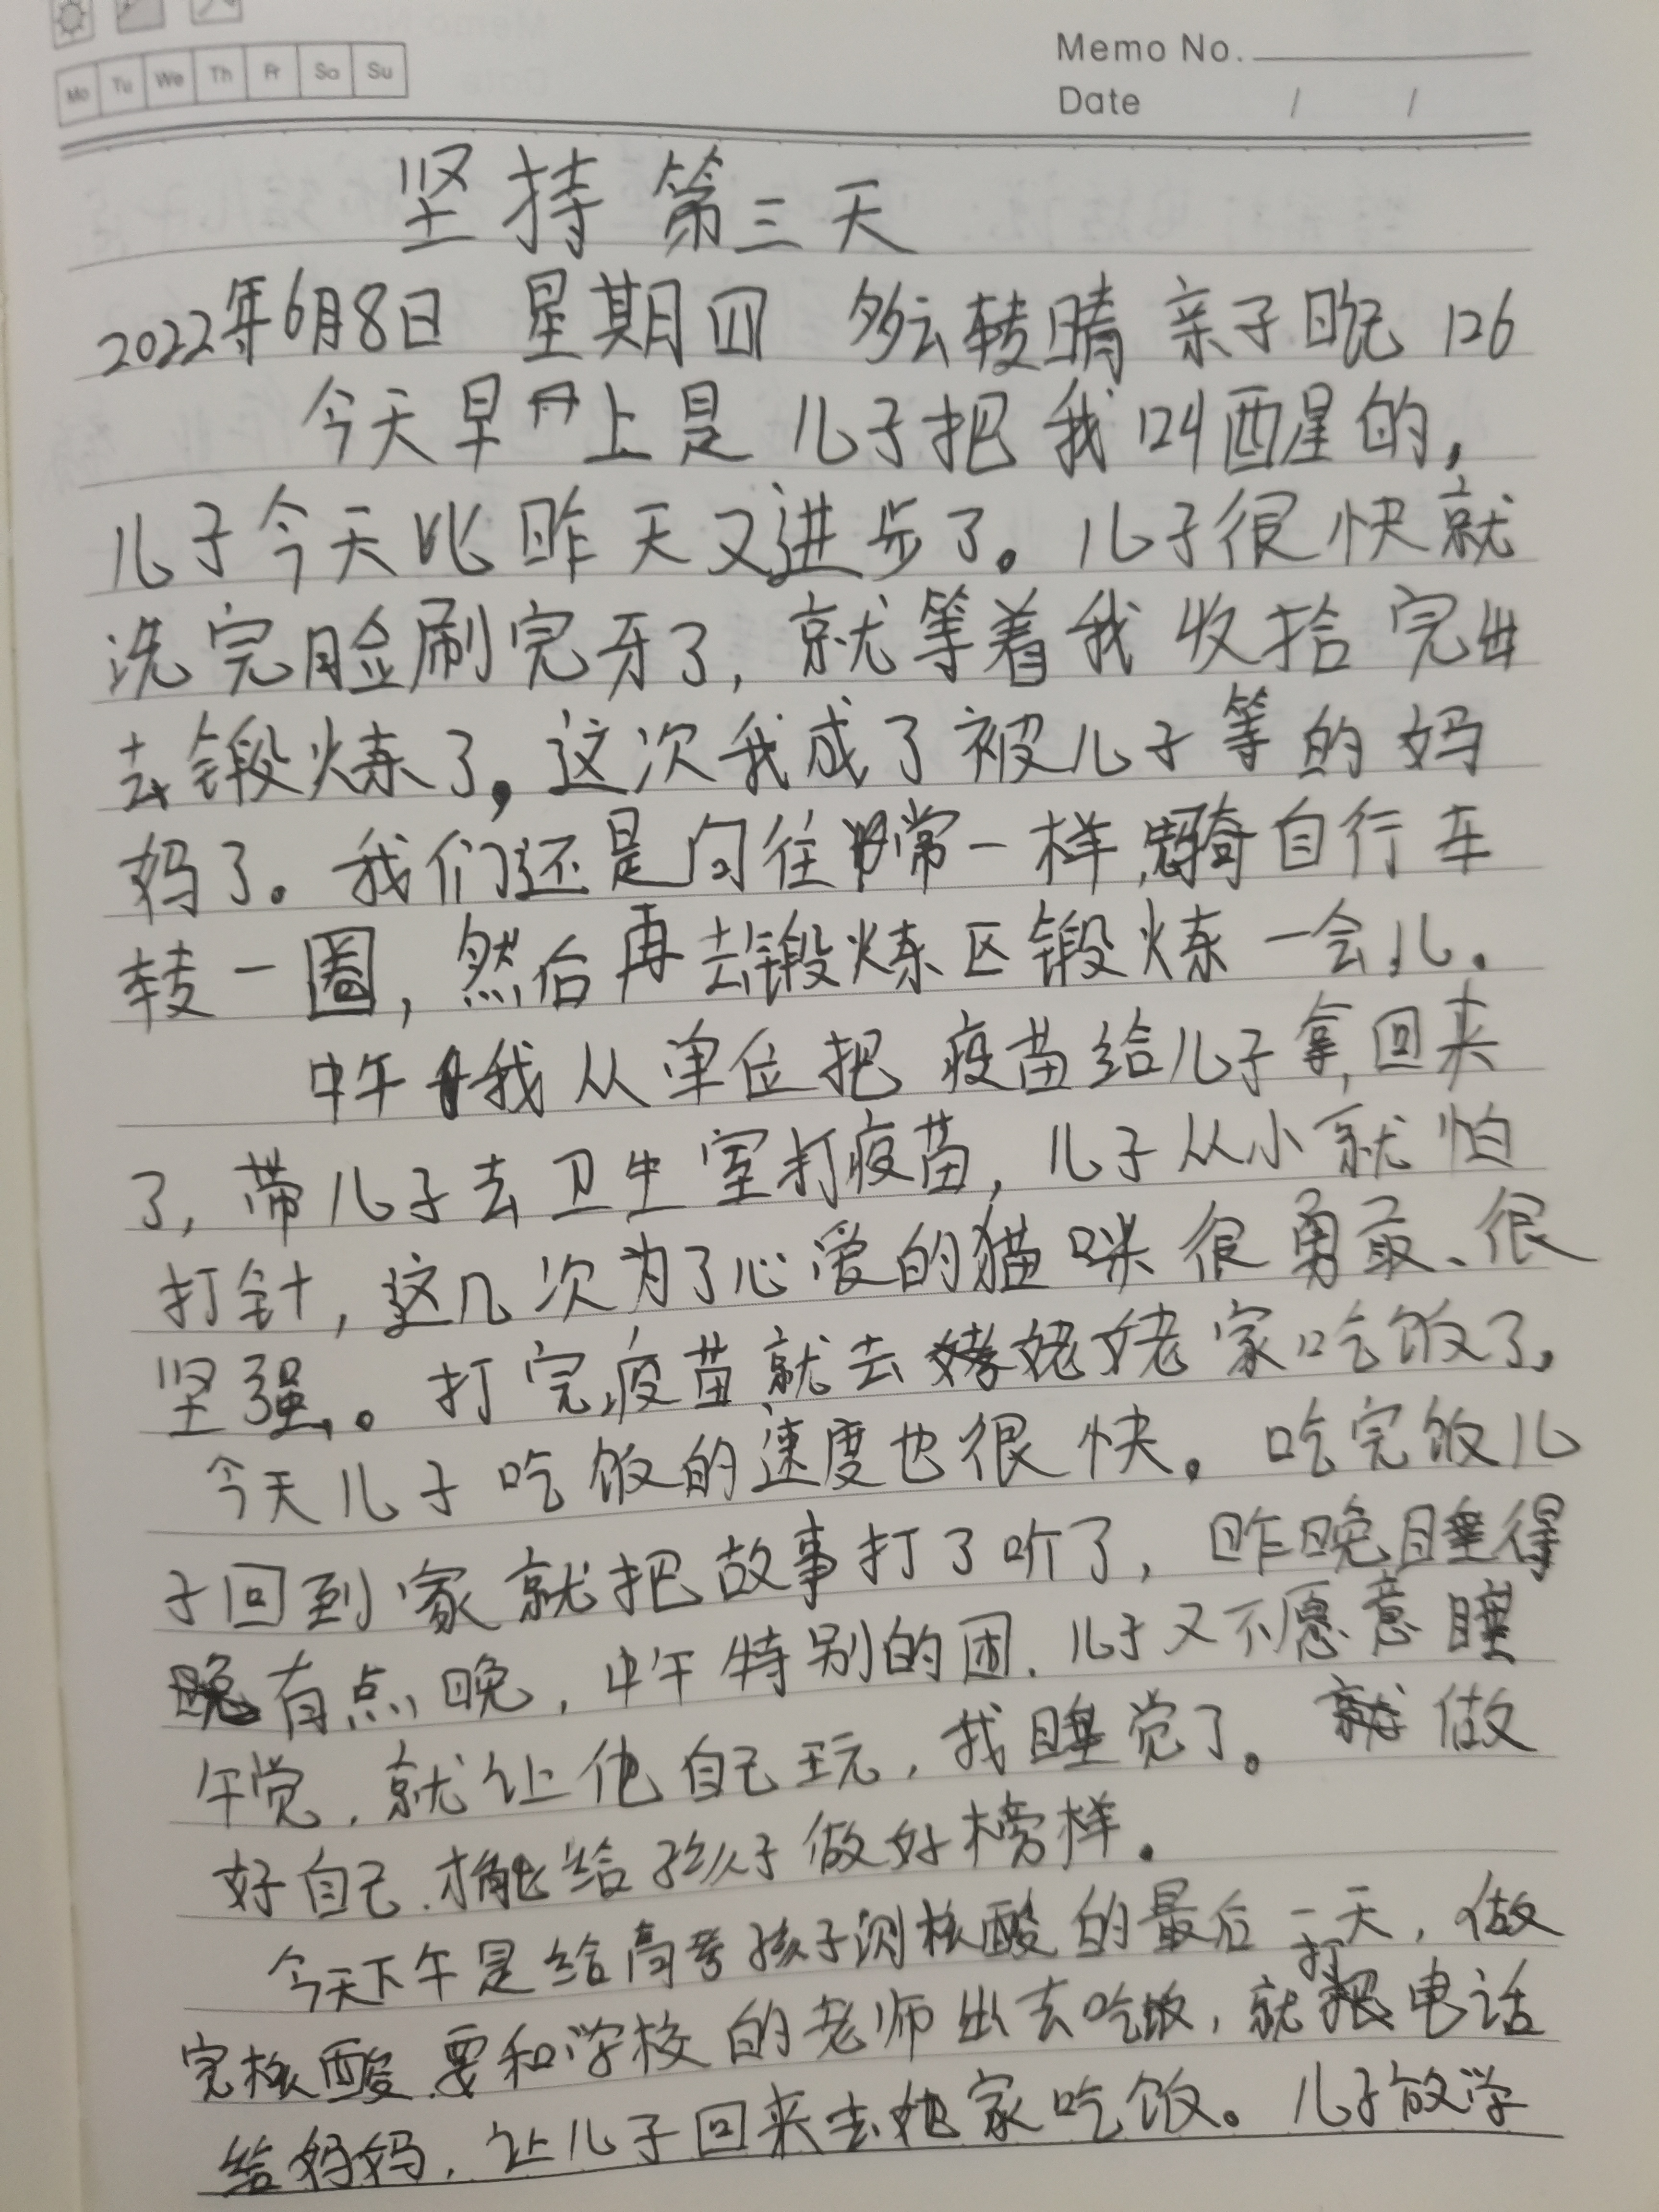 Mo Tu We Th Fr Sa Su
Memo No.
Date / /
坚持第三天
2022年6月8日 星期四 多云转晴 亲子日记 126
今天早上是儿子把我叫醒的,
儿子今天比昨天又进步了。儿子很快就
洗完脸刷完牙了,就等着我收拾完出
去锻炼了。这次我成了被儿子等的妈
妈了。我们还是向往常一样,骑自行车
转一圈,然后再去锻炼区锻炼一会儿.
中午我从单位把疫苗给儿子拿回来
了,带儿子去卫生室打疫苗,儿子从小就怕
打针,这几次为了心爱的猫咪很勇敢、很
坚强。打完疫苗就去姥姥家吃饭了,
今天儿子吃饭的速度也很快。吃完饭儿
子回到家就把故事打了听了,昨晚睡得
有点晚,中午特别的困.儿子又不愿意睡
午觉,就让他自己玩,我睡觉了。就做
好自己.才能给孩子做好榜样.
今天下午是给高考孩子测核酸的最后一天,做
完核酸.要和学校的老师出去吃饭,就打电话
给妈妈,让儿子回来去她家吃饭。儿子放学